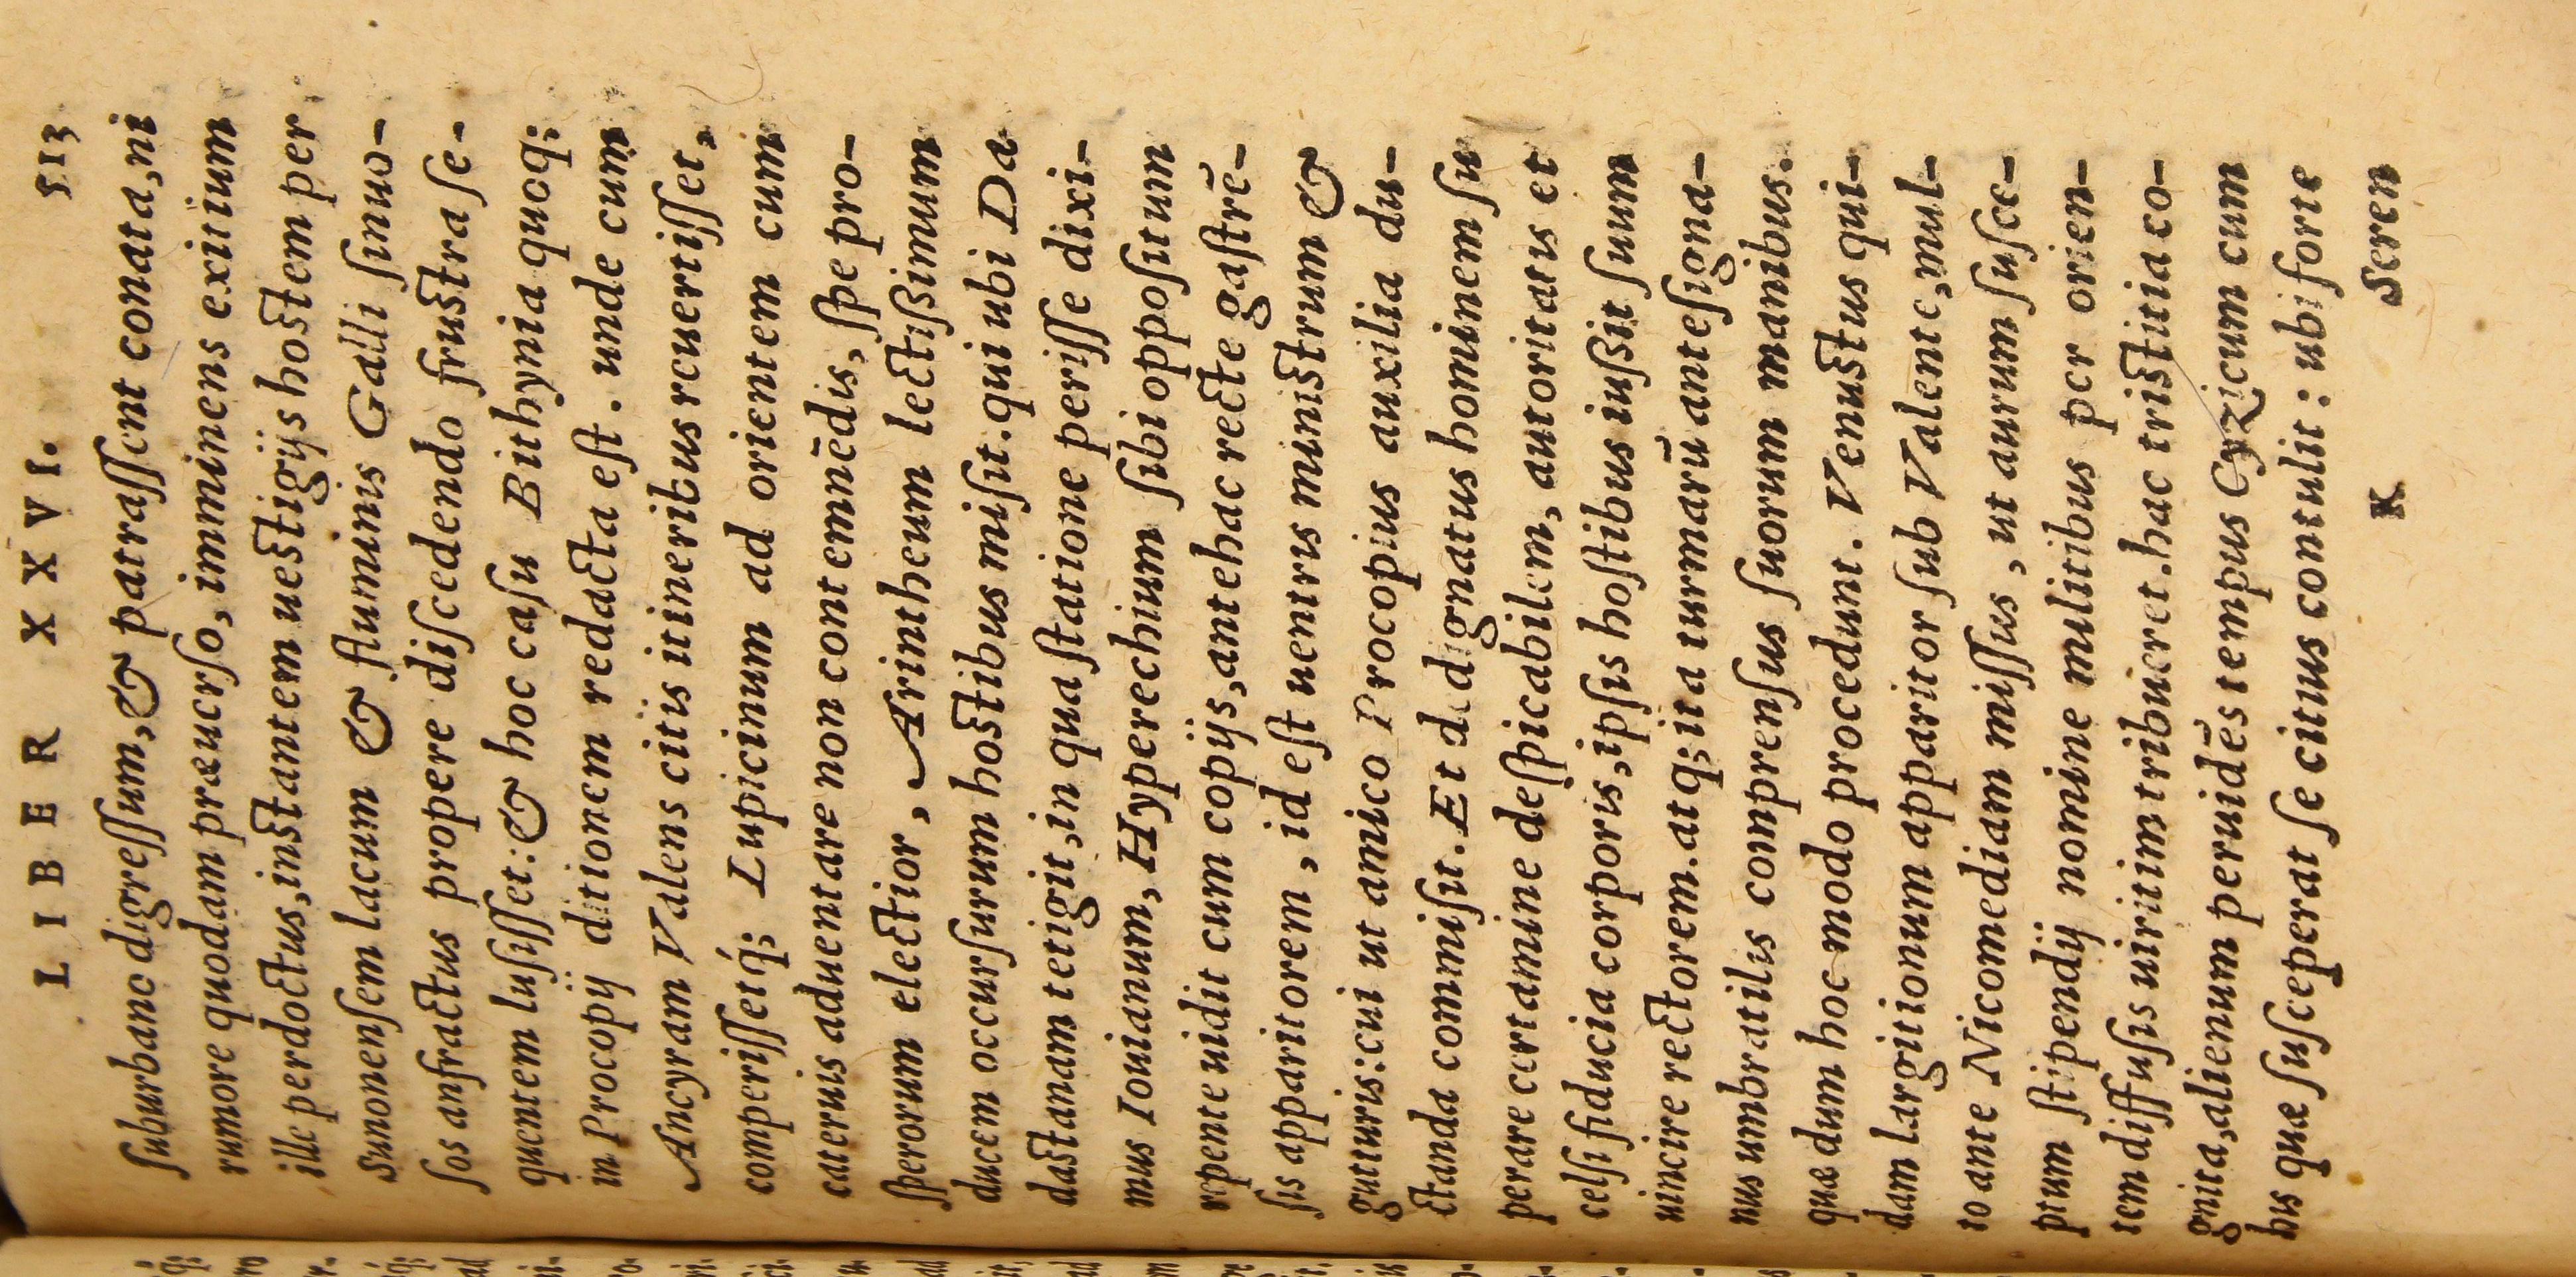 LIBER XXVI. 513
ſuburbano digreſſum, & patraſſent conata, ni
rumore quodam præuerſo, imminens exitium
ille perdoctus, inſtantem ueſtigijs hoſtem per
Sunonenſem lacum & fluminis Galli ſinuo-
ſos anfractus propere diſcedendo fruſtra ſe-
quentem luſiſſet: & hoc caſu Bithynia quoq;
in Procopij ditionem redacta eſt. unde cum
Ancyram Valens citis itineribus reuertiſſet,
comperiſſetq́; Lupicinum ad orientem cum
cateruis aduentare non contemnēdis, ſpe pro-
ſperorum electior, Arintheum lectiſsimum
ducem occurſurum hoſtibus miſit. qui ubi Da
daſtanam tetigit, in qua ſtatione periſſe dixi-
mus Iouianum, Hyperechium ſibi oppoſitum
repente uidit cum copijs, antehac recte gaſtrē-
ſis apparitorem, id eſt uentris miniſtrum &
gutturis: cui ut amico Procopius auxilia du-
ctanda commiſit. Et dedignatus hominem ſu
perare certamine deſpicabilem, autoritatis et
celſi fiducia corporis, ipſis hoſtibus iuſsit ſuum
uincire rectorem. atq; ita turmarū anteſigna-
nus umbratilis comprenſus ſuorum manibus.
quæ dum hoc modo procedunt. Venuſtus qui-
dam largitionum apparitor ſub Valente, mul-
to ante Nicomediam miſſus, ut aurum ſuſce-
ptum ſtipendij nomine militibus per orien-
tem diffuſis uiritim tribueret. hac triſtitia co-
gnita, alienum peruidēs tempus Cyzicum cum
his quæ ſuſceperat ſe citus contulit: ubi forte
K Seren